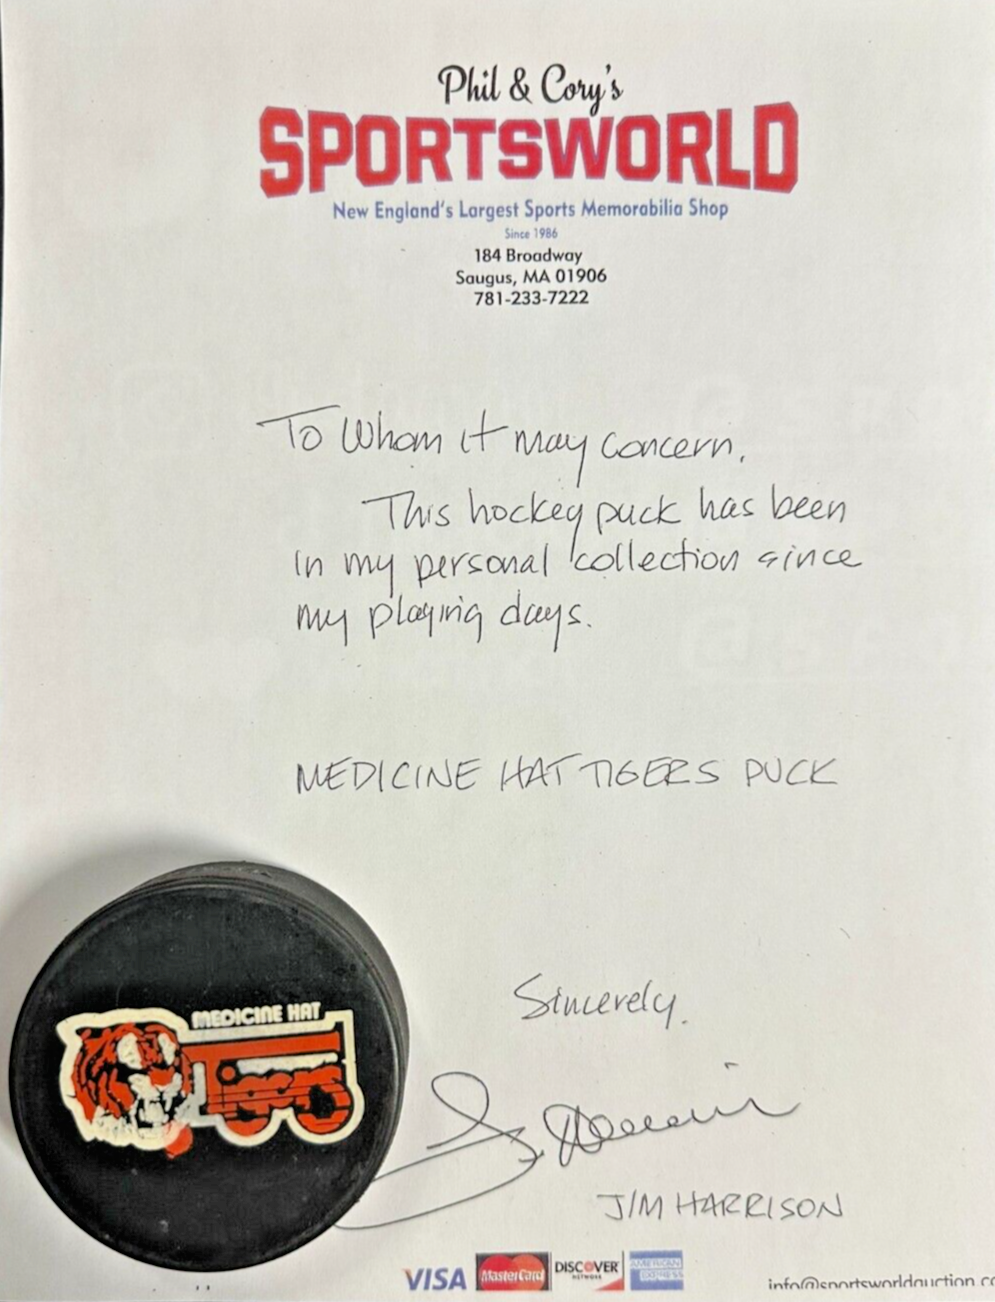 Phil & Cory's
SPORTSWORLD
New England's Largest Sports Memorabilia Shop
Since 1986
184 Broadway
Saugus, MA 01906
781-233-7222
To Whom it may concern,
This hockey puck has been
in my personal collection since
my playing days.
MEDICINE HAT TIGERS PUCK
Sincerely,
JIM HARRISON
MEDICINE HAT
Tigers
VISA MasterCard DISCOVER NETWORK AMERICAN EXPRESS
info@sportsworldauction.co